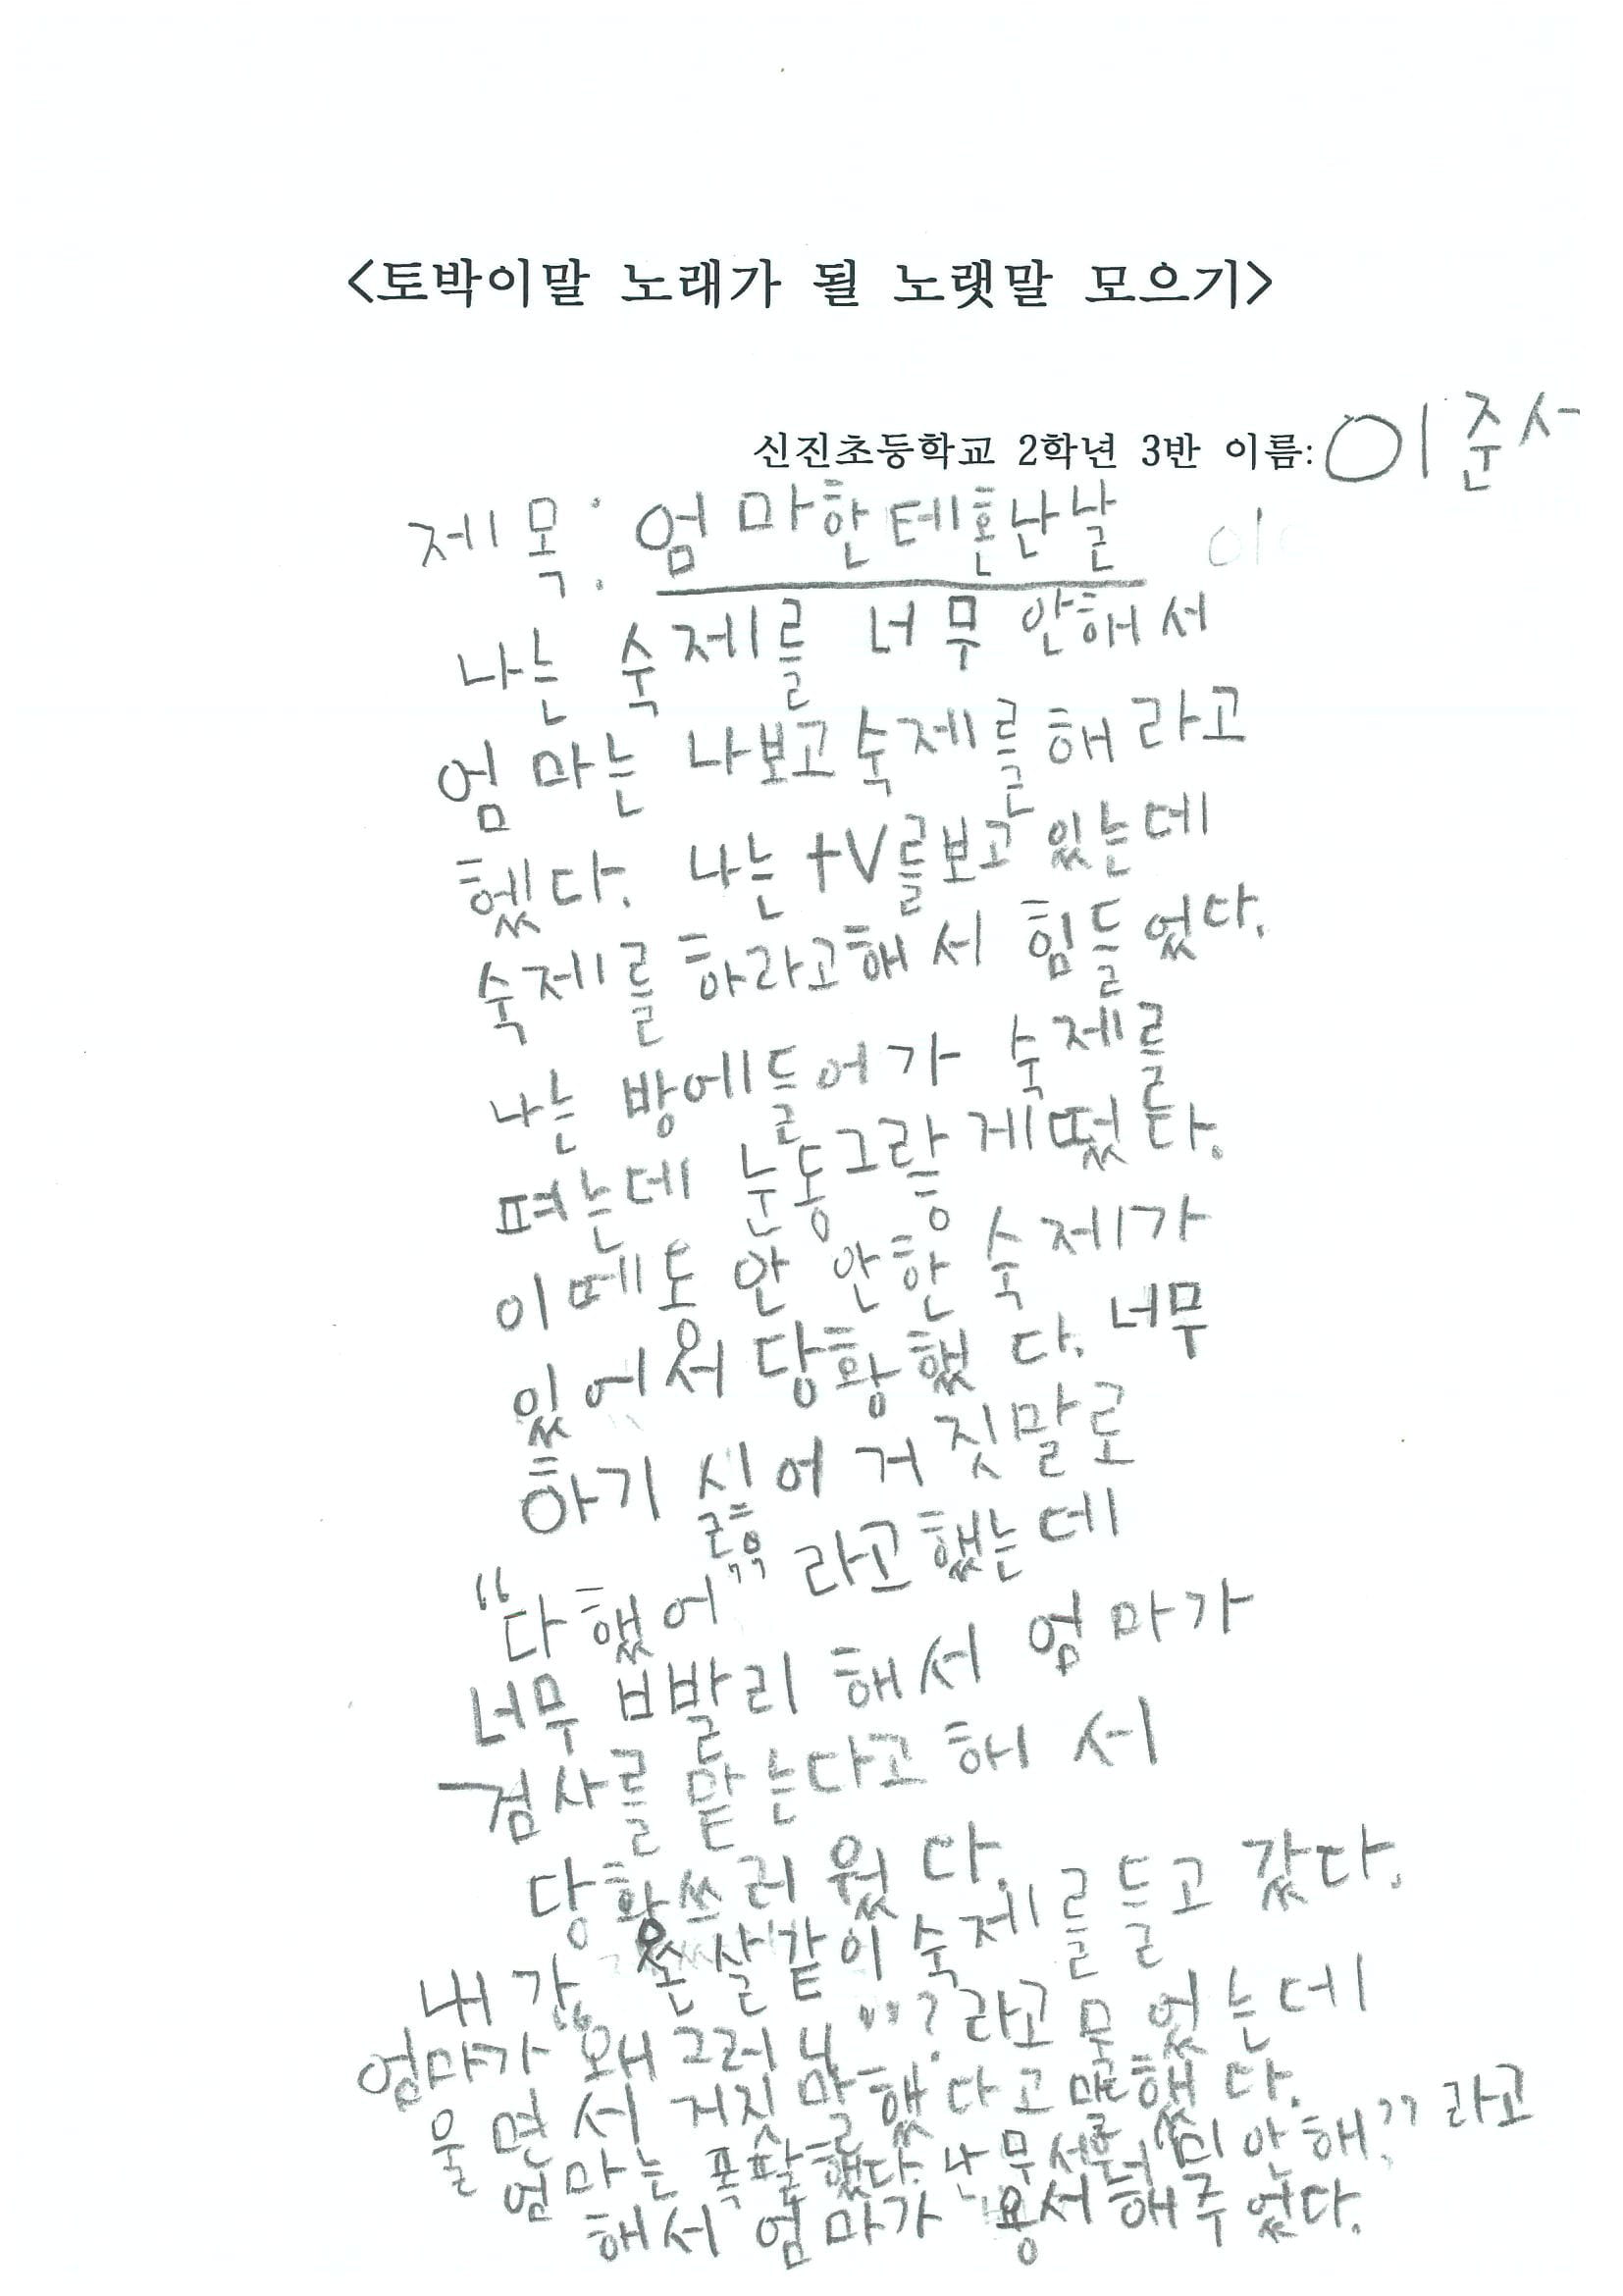 <토박이말 노래가 될 노랫말 모으기>
신진초등학교 2학년 3반 이름: 이준서
제목: 엄마한테혼난날
나는 숙제를 너무 안해서
엄마는 나보고숙제를해라고
헸다. 나는 tV를보고 있는데
숙제를 하라고해서 힘들었다.
나는 방에들어가 숙제를
펴는데 눈동그랗게떴다.
이떼도 안 안한 숙제가
있어서 당황했다. 너무
하기 싫어 거짓말로
"다했어" 라고했는데
너무 빨리 해서 엄마가
검사를 맡는다고 해서
당황쓰러웠다.
내가 쏜살같이 숙제를들고 갔다.
엄마가 "왜 그러니"? 라고 묻었는데
울면서 거짓말했다고 말했다.
엄마는 폭팔했다. 난 무서워 "미안해." 라고
해서 엄마가 용서해주었다.